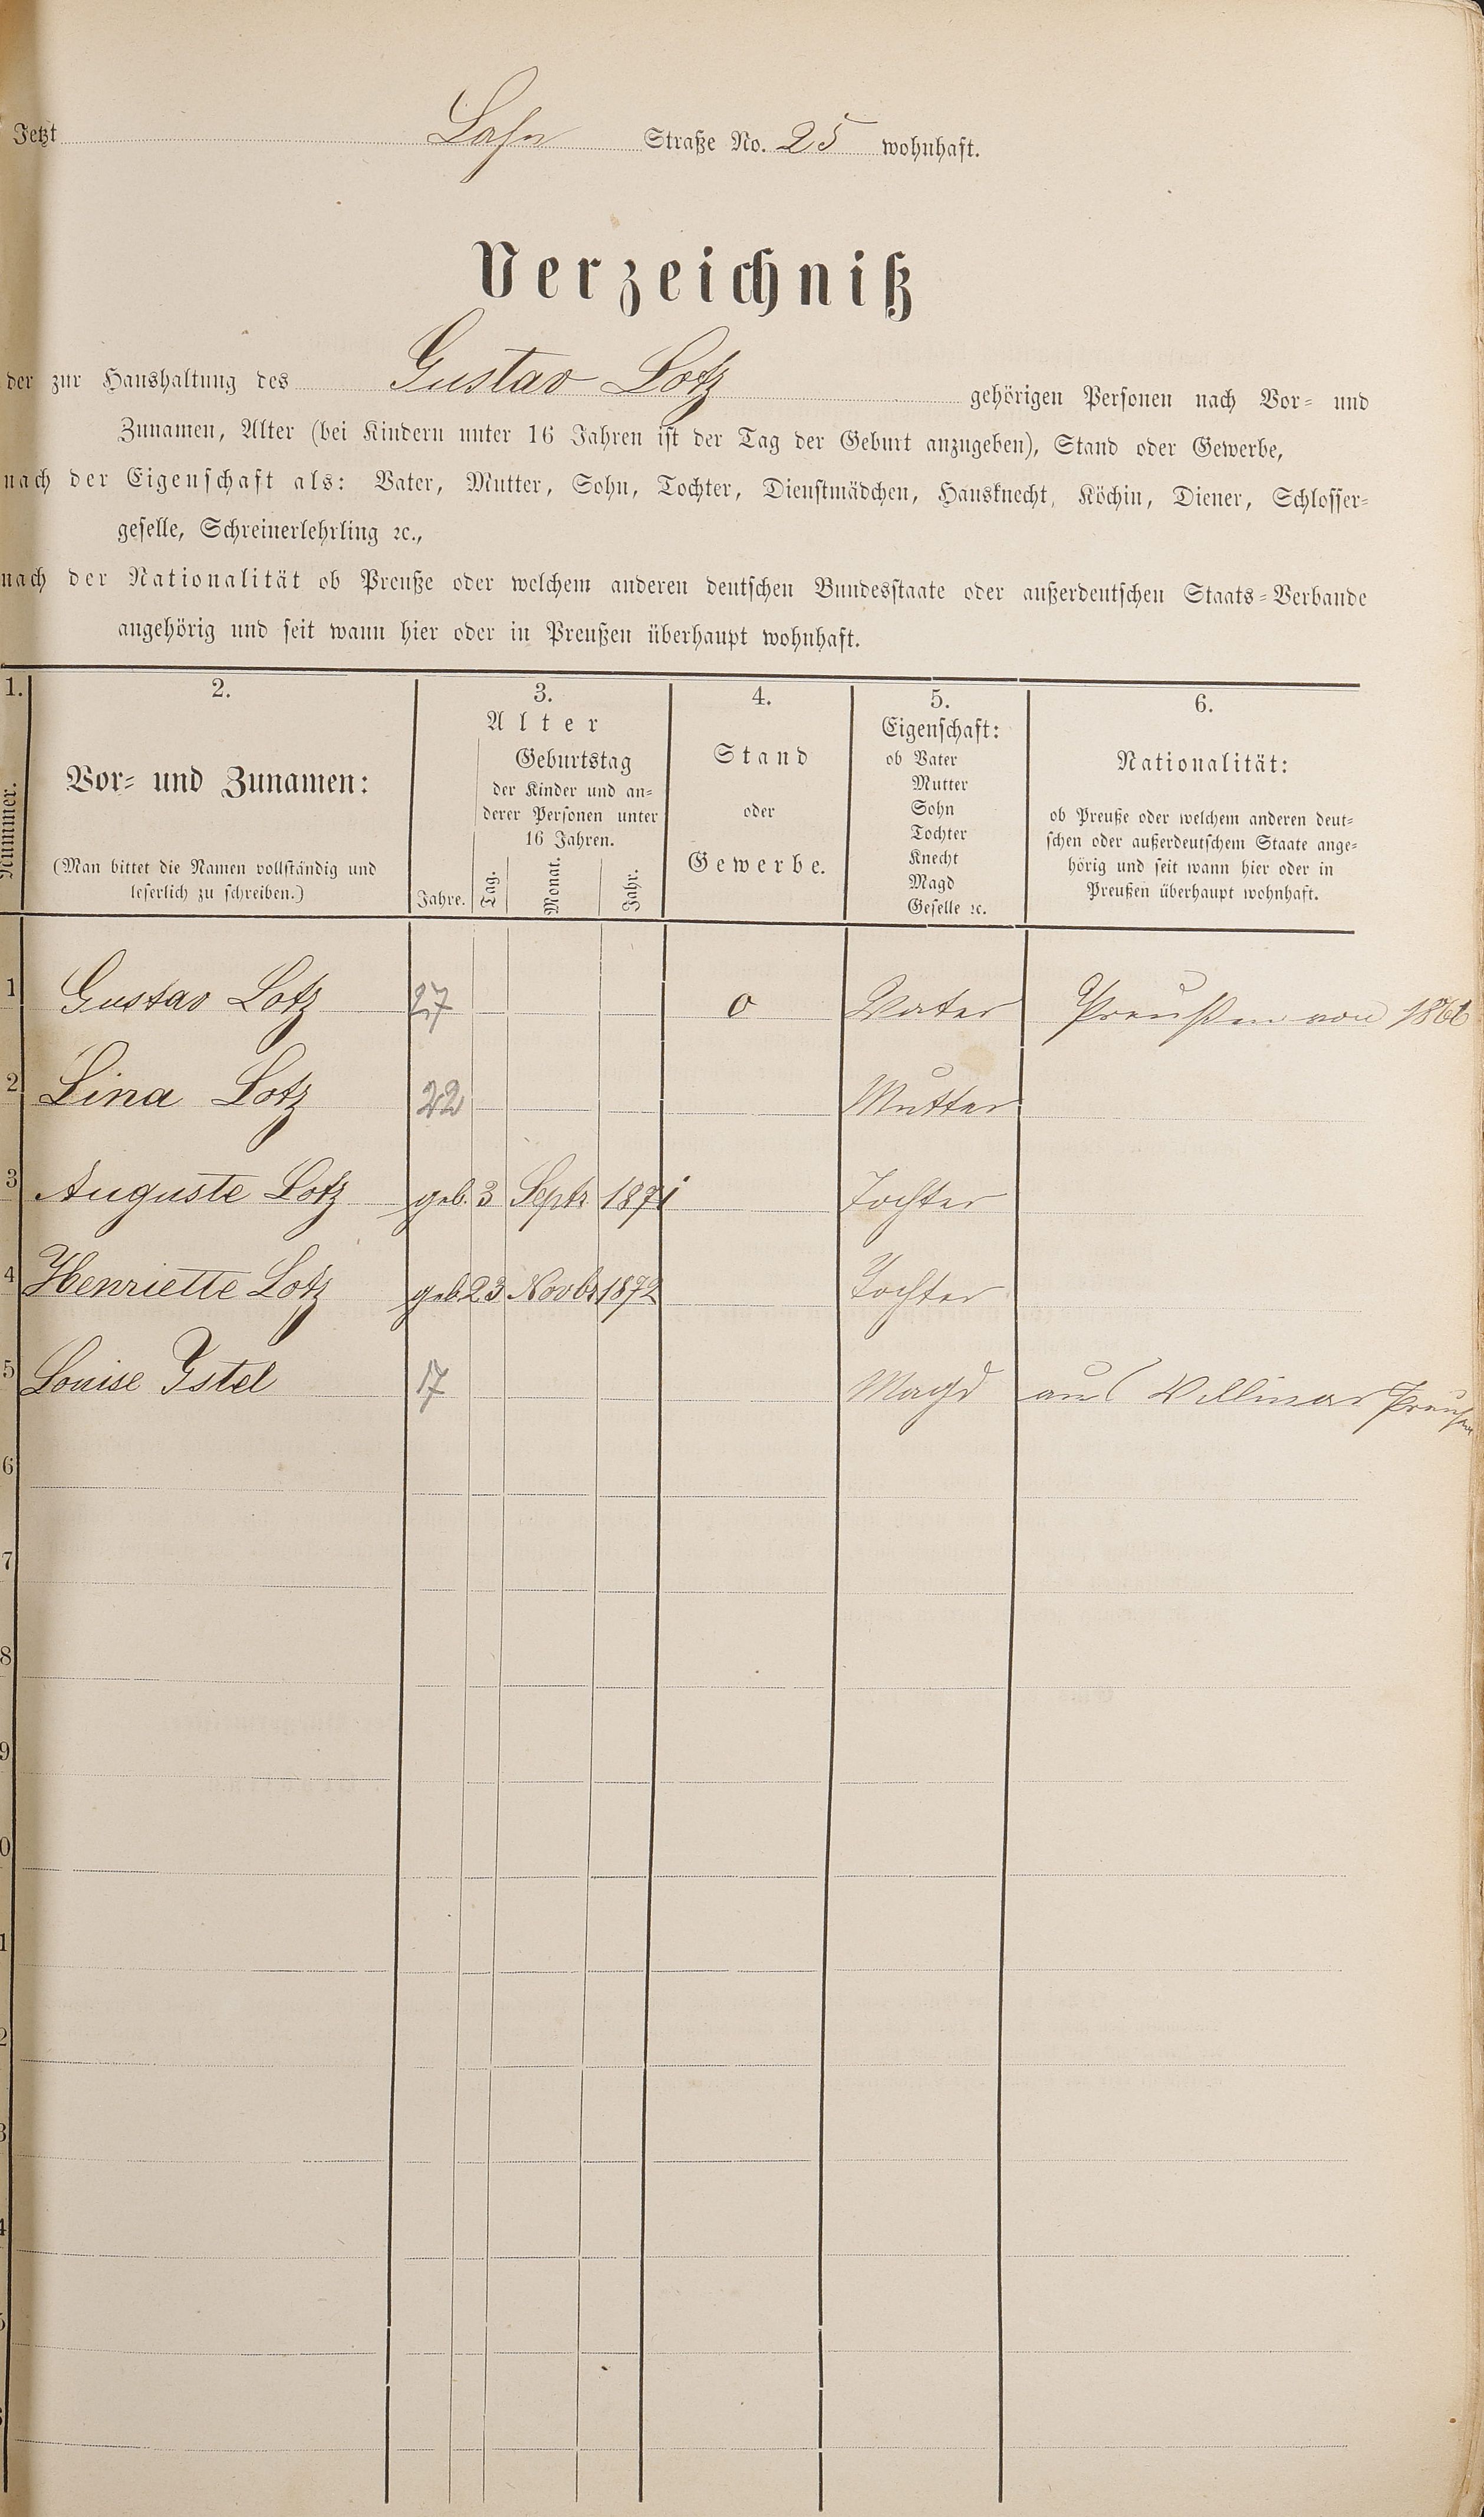 Jetzt Lahn Straße No. 25 wohnhaft.
Verzeichniß
der zur Haushaltung des Gustav Lotz gehörigen Personen nach Vor- und
Zunamen, Alter (bei Kindern unter 16 Jahren ist der Tag der Geburt anzugeben), Stand oder Gewerbe,
nach der Eigenschaft als: Vater, Mutter, Sohn, Tochter, Dienstmädchen, Hausknecht, Köchin, Diener, Schlosser-
geselle, Schreinerlehrling ꝛc.,
nach der Nationalität ob Preuße oder welchem anderen deutschen Bundesstaate oder außerdeutschen Staats-Verbande
angehörig und seit wann hier oder in Preußen überhaupt wohnhaft.
1.
Nummer.
2.
Vor- und Zunamen:
(Man bittet die Namen vollständig und
leserlich zu schreiben.)
3.
Alter
Jahre.
Geburtstag
der Kinder und an-
derer Personen unter
16 Jahren.
Tag. Monat. Jahr.
4.
Stand
oder
Gewerbe.
5.
Eigenschaft:
ob Vater
Mutter
Sohn
Tochter
Knecht
Magd
Geselle ꝛc.
6.
Nationalität:
ob Preuße oder welchem anderen deut-
schen oder außerdeutschem Staate ange-
hörig und seit wann hier oder in
Preußen überhaupt wohnhaft.
1 Gustav Lotz 27 o Vater Preußen von 1866
2 Lina Lotz 22 Mutter
3 Auguste Lotz geb. 3 Septr 1871 Tochter
4 Henriette Lotz geb 23 Novbr 1872 Tochter
5 Louise Istel 17 Magd aus Villmar Preußen
6
7
8
9
0
1
2
3
4
5